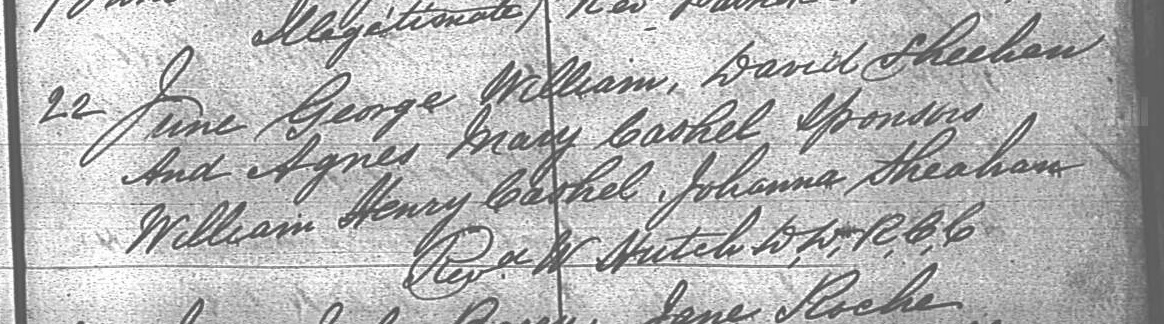 Illegitimate) Rev
22 June George William, David Sheehan
And Agnes Mary Cashel Sponsors
William Henry Cashel, Johanna Sheahan
Revd W Hutch D,D, R,C,C
Jane Roche